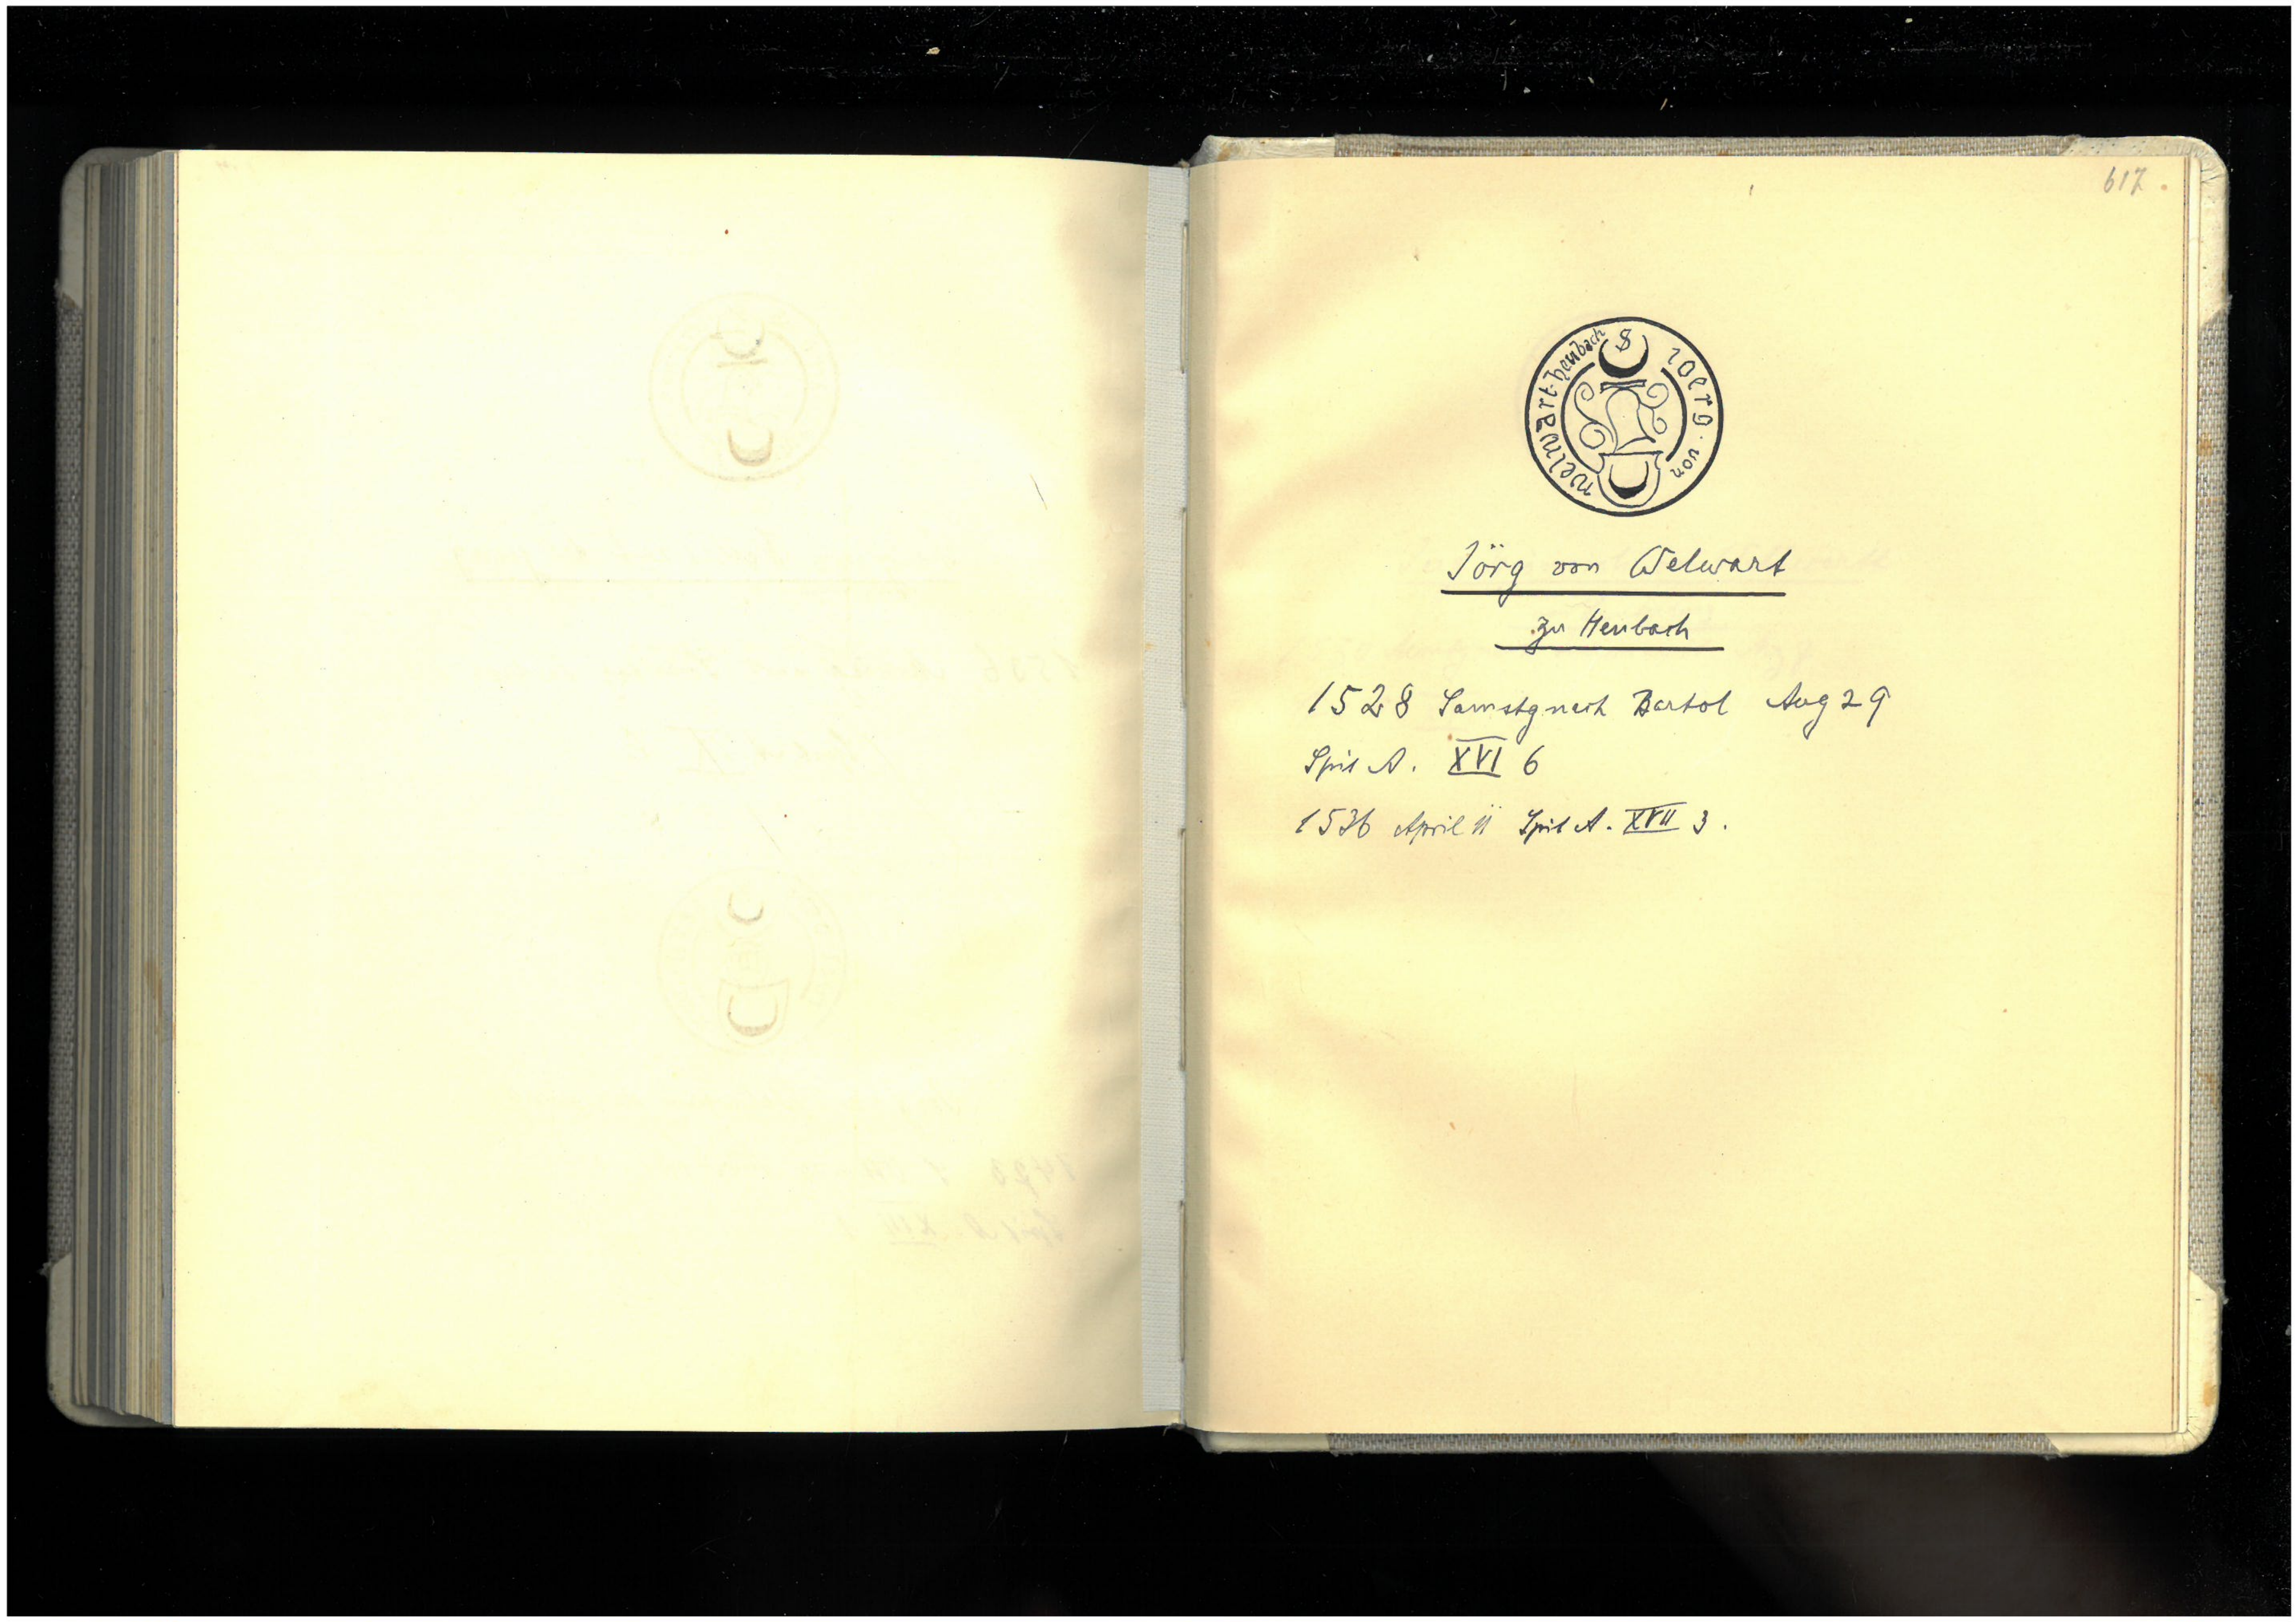 617.
S ioerg · von welwart · heubach
Jörg von Welwart
zu Heubach
1528 Samstg nach Bartol Aug 29
Spit A. XVI 6
1536 April 11 Spit A. XVII 3.